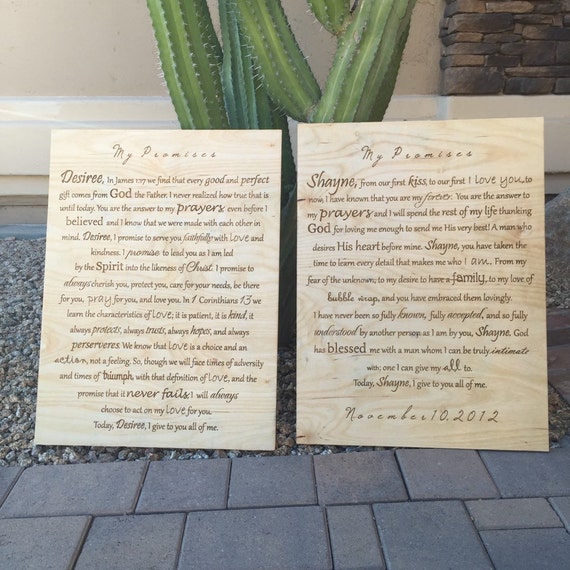 My Promises
Desiree, In James 1:17 we find that every good and perfect
gift comes from God the Father. I never realized how true that is
until today. You are the answer to my prayers even before I
believed and I know that we were made with each other in
mind. Desiree, I promise to serve you faithfully with love and
kindness. I promise to lead you as I am led
by the Spirit into the likeness of Christ. I promise to
always cherish you, protect you, care for your needs, be there
for you, pray for you, and love you. In 1 Corinthians 13 we
learn the characteristics of love; it is patient, it is kind, it
always protects, always trusts, always hopes, and always
perserveres. We know that love is a choice and an
action, not a feeling. So, though we will face times of adversity
and times of triumph, with that definition of love, and the
promise that it never fails I will always
choose to act on my love for you.
Today, Desiree, I give to you all of me.
My Promises
Shayne, from our first kiss, to our first I love you, to
now, I have known that you are my forever. You are the answer to
my prayers and I will spend the rest of my life thanking
God for loving me enough to send me His very best! A man who
desires His heart before mine. Shayne, you have taken the
time to learn every detail that makes me who I am. From my
fear of the unknown, to my desire to have a family, to my love of
bubble wrap, and you have embraced them lovingly.
I have never been so fully known, fully accepted, and so fully
understood by another person as I am by you, Shayne. God
has blessed me with a man whom I can be truly intimate
with; one I can give my all to.
Today, Shayne, I give to you all of me.
November 10, 2012